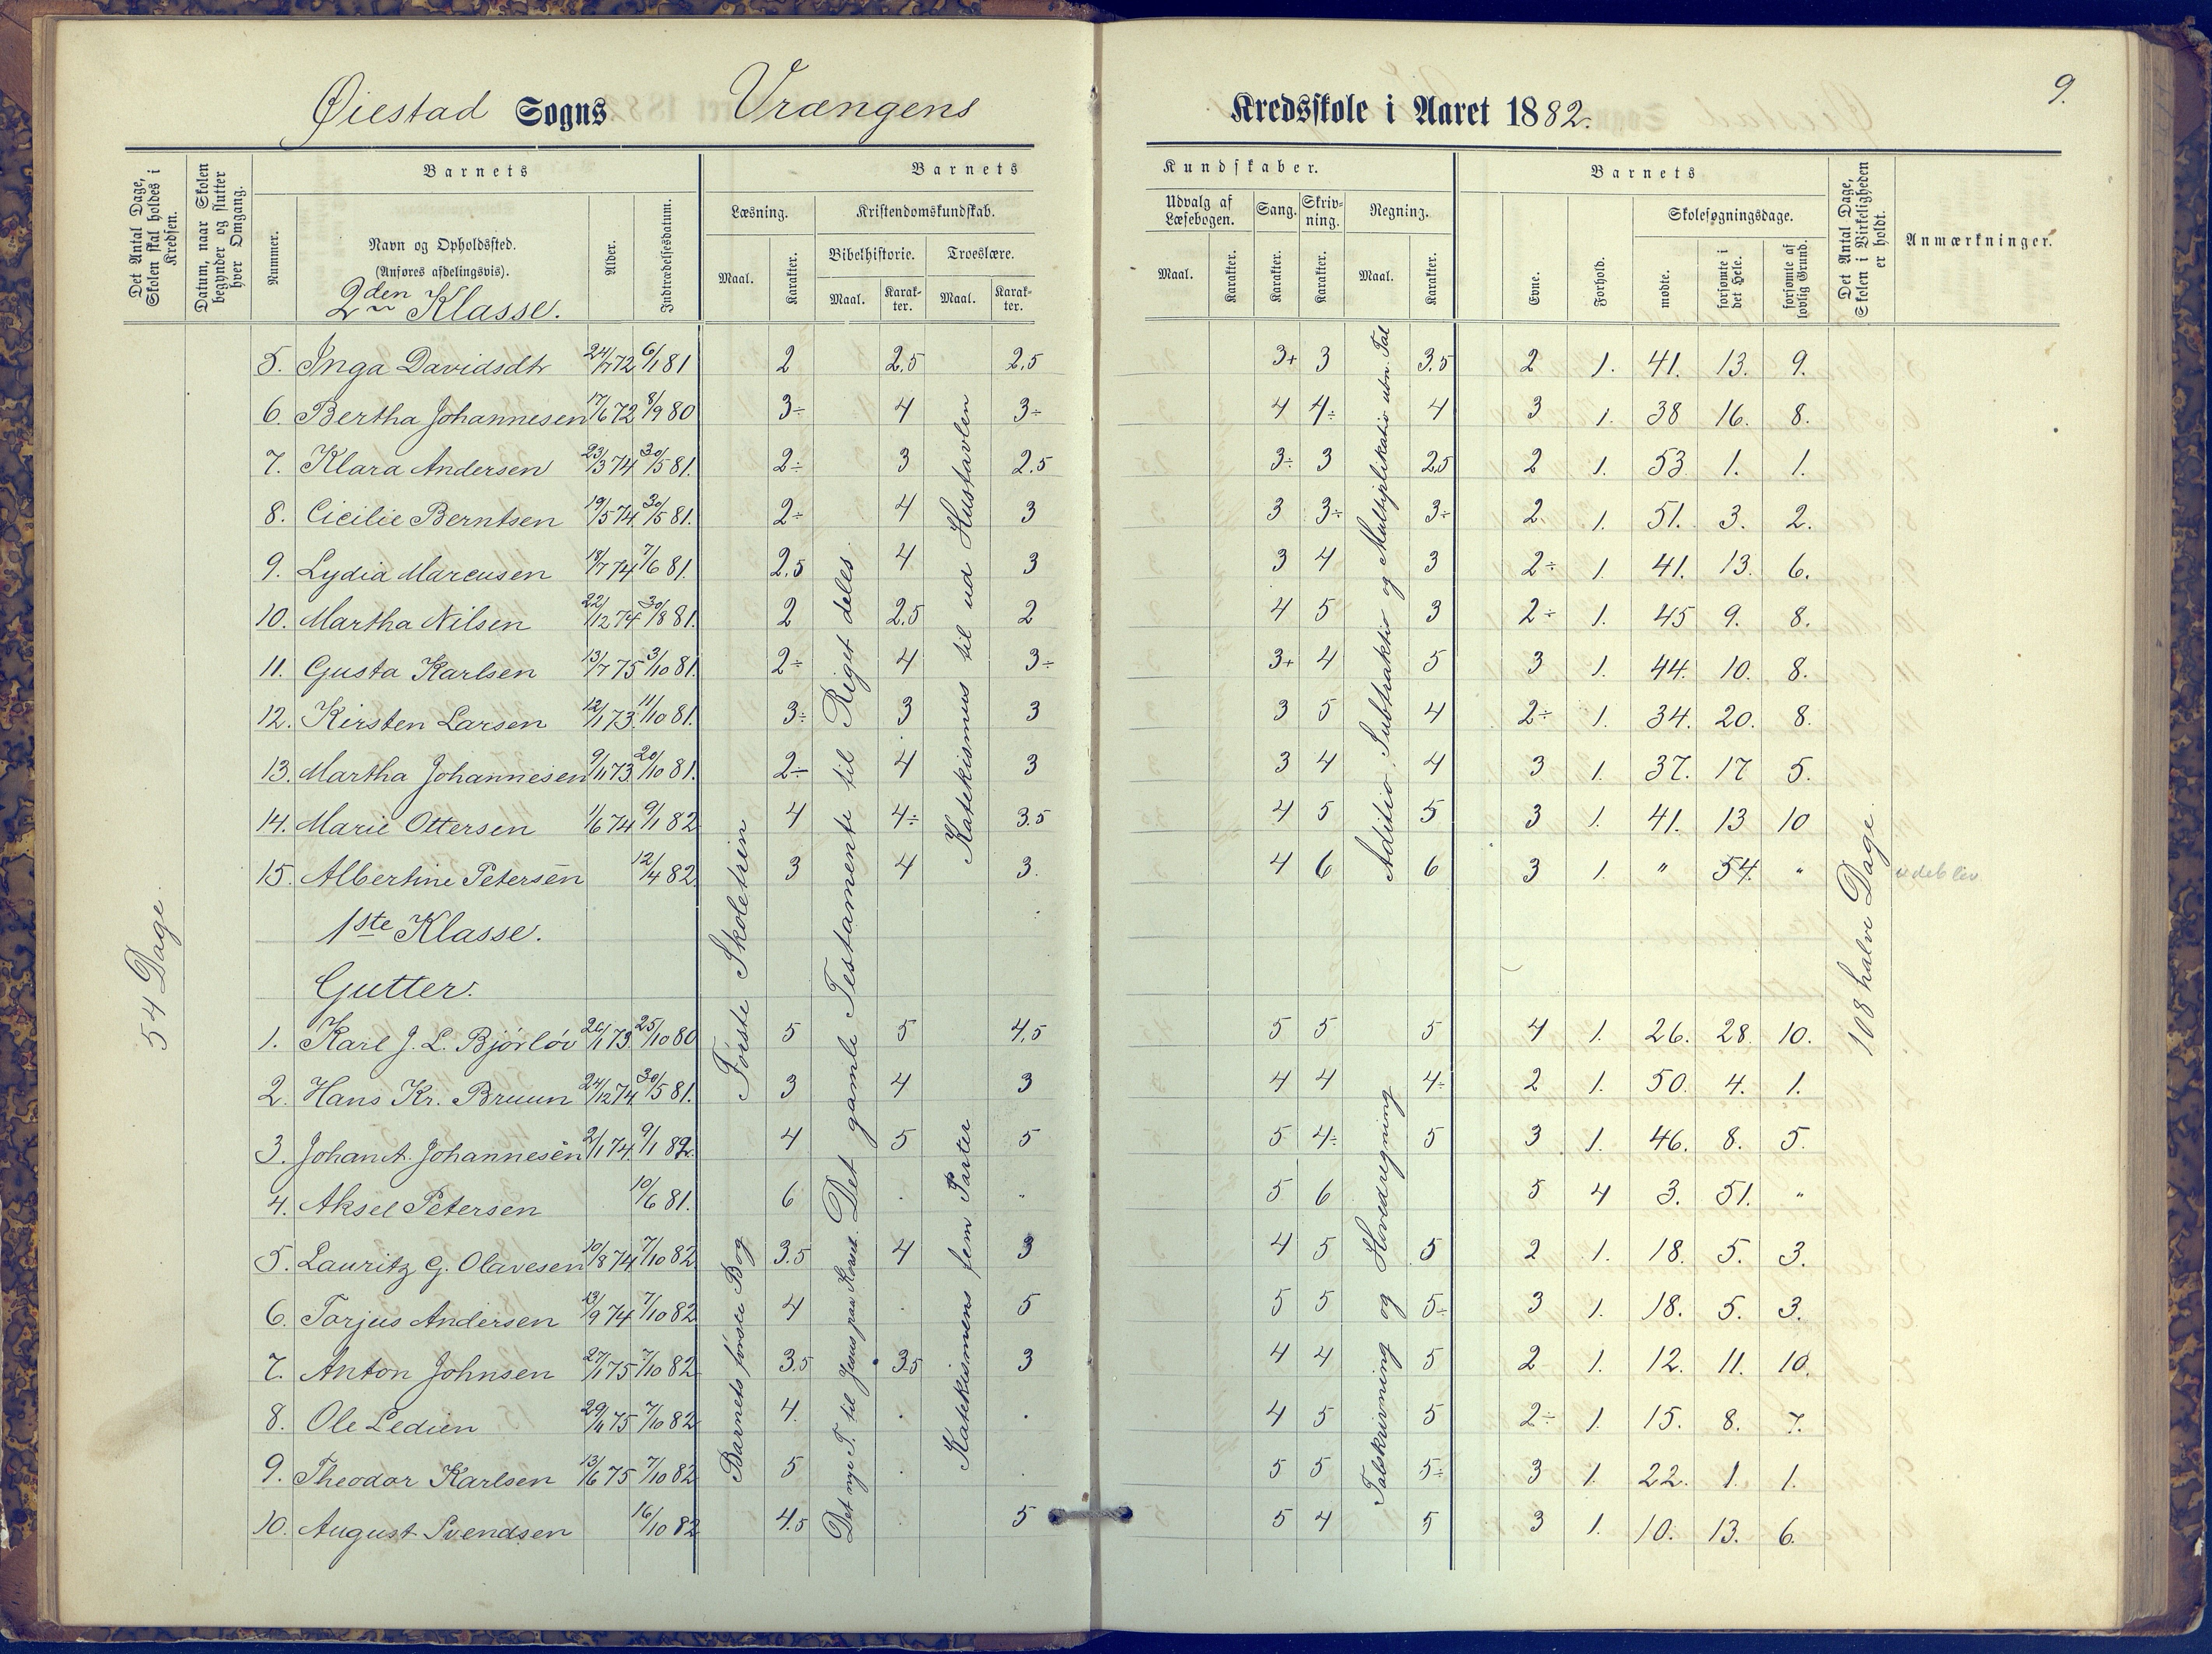 Øiestad Sogns Vrængens Kredsskole i Aaret 1882. 9.
Det Antal Dage, Skolen skal holdes i Kredsen.
Datum, naar Skolen begynder og slutter hver Omgang.
Barnets
Nummer.
Navn og Opholdssted.
(Anføres afdelingsvis).
2den Klasse.
Alder.
Indtrædelsesdatum.
Barnets Kundskaber.
Læsning.
Maal.
Karakter.
Kristendomskundskab.
Bibelhistorie.
Maal.
Karakter.
Troeslære.
Maal.
Karakter.
Udvalg af Læsebogen.
Maal.
Karakter.
Sang.
Karakter.
Skrivning.
Karakter.
Regning.
Maal.
Karakter.
Barnets
Evne.
Forhold.
Skolesøgningsdage.
mødte.
forsømte i det Hele.
forsømte af lovlig Grund.
Det Antal Dage, Skolen i Virkeligheden er holdt.
Anmærkninger.
5. Inga Davidsdtr 24/7 72 6/1 81 2 2,5 2,5 3+ 3 3.5 2 1. 41. 13. 9.
6. Bertha Johannesen 17/6 72 8/9 80 3÷ 4 3÷ 4 4÷ 4 3 1. 38 16. 8.
7. Klara Andersen 23/3 74 30/5 81. 2÷ 3 2.5 3÷ 3 2,5 2 1. 53 1. 1.
8. Cicilie Berntsen 19/5 74 30/5 81. 2÷ 4 3 3 3÷ 3÷ 2. 1. 51. 3. 2.
9. Lydia Marcusen 18/7 74 7/6 81. 2.5 4 3 3 4 3 2÷ 1. 41. 13. 6.
10. Martha Nilsen 22/12 74 30/8 81. 2 2.5 2 4 5 3 2÷ 1. 45 9. 8.
11. Gusta Karlsen 13/7 75 3/10 81. 2÷ 4 3÷ 3+ 4 5 3 1. 44. 10. 8.
12. Kirsten Larsen 12/1 73. 11/10 81. 3÷ 3 3 3 5 4 2÷ 1. 34. 20. 8.
13. Martha Johannesen 9/11 73 20/10 81. 2÷ 4 3 3 4 4 3 1. 37. 17 5.
14. Marie Ottersen 1/6 74 9/1 82 4 4÷ 3.5 4 5 5 3 1. 41. 13 10
15. Albertine Petersen 12/4 82. 3 4 3. 4 6 6 3 1. " 54. " udeblev
1ste Klasse.
Gutter.
1. Karl J. L. Bjørløv 20/1 73. 25/10 80 5 5 4,5 5 5 5 4 1. 26. 28. 10.
2. Hans Kr. Bruun 24/12 74 30/5 81. 3 4 3 4 4 4÷ 2 1. 50. 4. 1.
3. Johan A. Johannesen 2/1 74. 9/1 82. 4 5 5 5 4÷ 5 3 1. 46. 8. 5.
4. Aksel Petersen 10/6 81. 6 . " 5 6 5 4 3. 51. "
5. Lauritz G. Olavesen 10/8 74 7/10 82 3.5 4 3 4 5 5 2 1. 18. 5. 3.
6. Torjus Andersen 13/9 74 7/10 82 4 . 5 5 5 5÷ 3 1. 18. 5. 3.
7. Anton Johnsen 27/1 75 7/10 82 3.5 3.5 3 4 4 5 2 1. 12. 11. 10.
8. Ole Ledien 29/11 75 7/10 82 4. . . 4 5 5 2÷ 1. 15. 8. 7.
9. Theodor Karlsen 13/6 75 7/10 82 5 . . 5 5 5÷ 3 1. 22. 1. 1.
10. August Svendsen 16/10 82 4.5 5 5 4 5 3 1. 10. 13. 6.
54 Dage
Første Skoletrin
Barnets første Bog
Det gamle Testamente til Riget deles.
Det nye T. til Jesus paa Korset.
Katekismus til ud Hustavlen
Katekismens fem Parter
Aditio, Subtraktio og Multiplikatio ubn. Tal
Talskrivning og Hovedregning
108 halve Dage